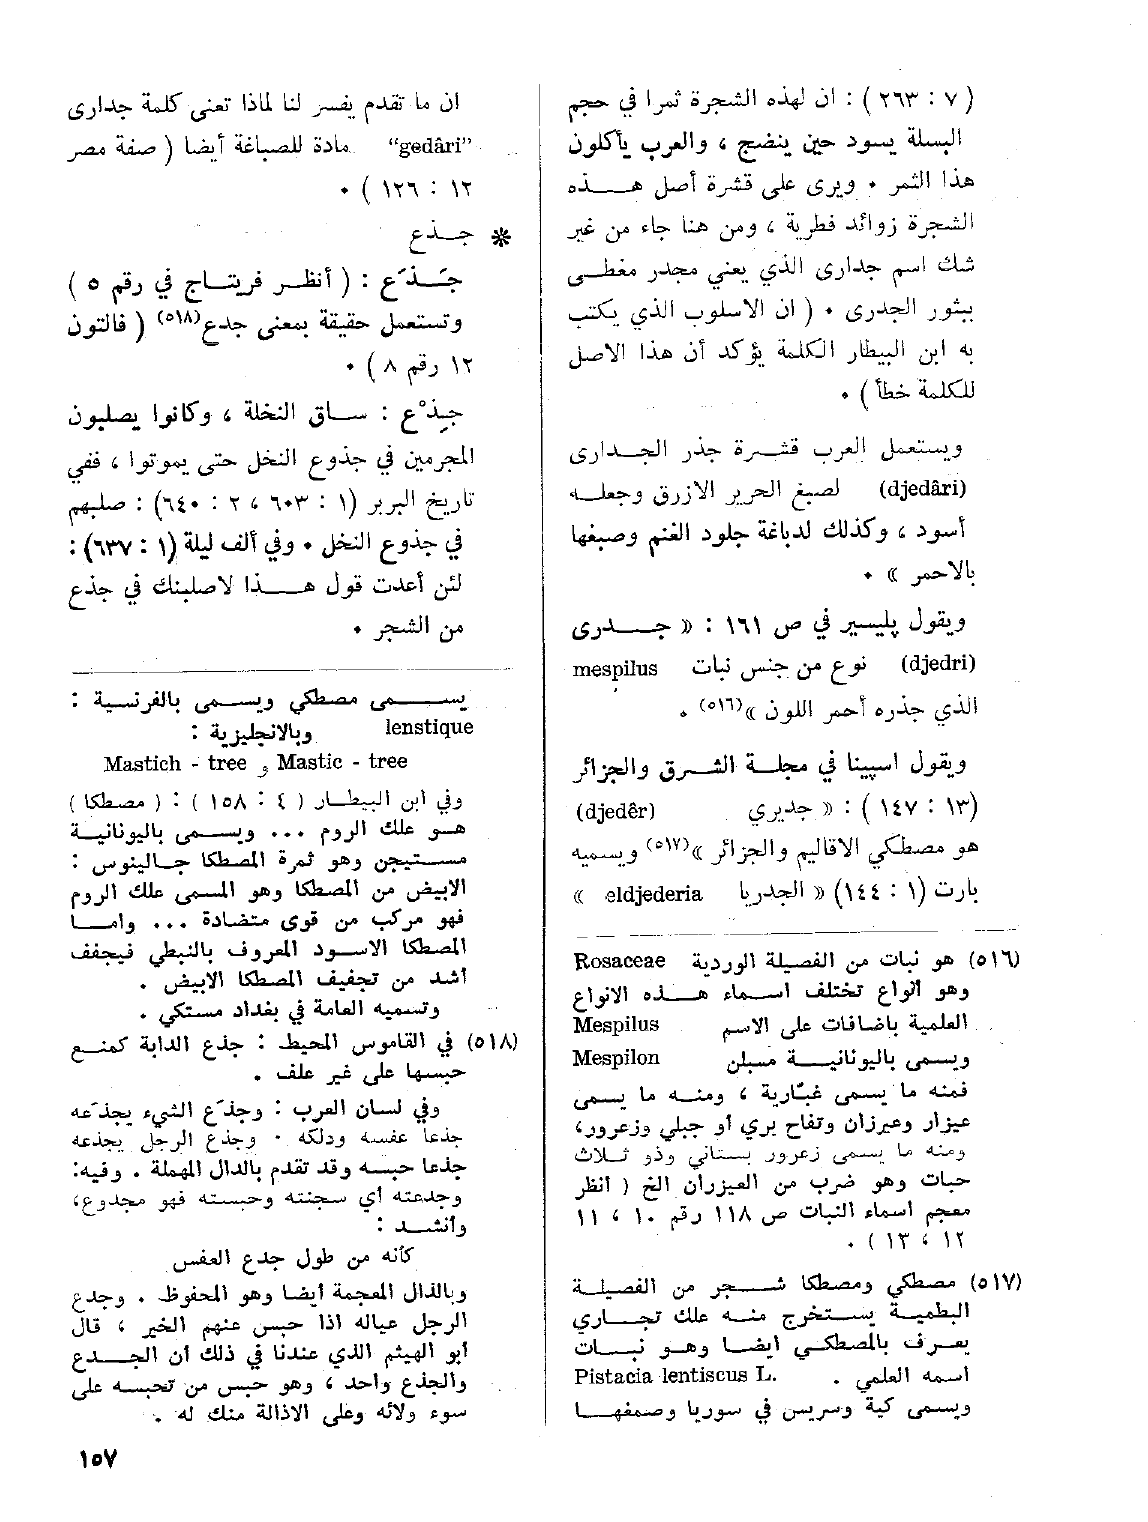 ( ٧ : ٢٦٣ ) : ان لهذه الشجرة ثمرا في حجم
البسلة يسود حين ينضج ، والعرب يأكلون
هذا الثمر ٠ ويرى على قشرة أصل هـــذه
الشجرة زوائد فطرية ، ومن هنا جاء من غير
شك اسم جدارى الذي يعني مجدر مغطـى
بثور الجدرى ٠ ( ان الاسلوب الذي يكتب
به ابن البيطار الكلمة يؤكد أن هذا الاصل
للكلمة خطأ ) ٠
ويستعمل العرب قشـرة جذر الجــدارى
(djedâri) لصبغ الحرير الازرق وجعلـه
أسود ، وكذلك لدباغة جلود الغنم وصبغها
بالاحمر » ٠
ويقول پليسير في ص ١٦١ : « جـــدرى
(djedri) نوع من جنس نبات mespilus
الذي جذره أحمر اللون »(٥١٦) ٠
ويقول اسپينا في مجلـة الشـرق والجزائر
(١٣ : ١٤٧ ) : « جديري (djedêr)
هو مصطكي الاقاليم والجزائر »(٥١٧) ويسميه
بارت (١ : ١٤٤) « الجدريا eldjederia »
(٥١٦) هو نبات من الفصيلة الوردية Rosaceae
وهو أنواع تختلف اسـماء هـــذه الانواع
العلمية باضافات على الاسم Mespilus
ويسمى باليونانيـــة مسبلن Mespilon
فمنه ما يسمى غبّارية ، ومنـه ما يسمى
عيزار وعيزران وتفاح بري أو جبلي وزعرور،
ومنه ما يسمى زعرور بستاني وذو ثـلاث
حبات وهو ضرب من العيزران الخ ( انظر
معجم اسماء النبات ص ١١٨ رقم ١٠ ، ١١
١٢ ، ١٣ ) ٠
(٥١٧) مصطكي ومصطكا شـــجر من الفصيلـة
البطميـة يستخرج منــه علك تجــاري
يعـرف بالمصطكـي ايضـا وهـو نبــات
اسمه العلمي . Pistacia lentiscus L.
ويسمى كية وسريس في سوريا وصمغهــا
ان ما تقدم يفسر لنا لماذا تعنى كلمة جدارى
“gedâri” مادة للصباغة أيضا ( صفة مصر
١٢ : ١٢٦ ) ٠
✻ جــذع
جَــذَع : ( أنظـر فريتـاج في رقم ٥ )
وتستعمل حقيقة بمعنى جدع(٥١٨) ( فالتون
١٢ رقم ٨ ) ٠
جِذْع : ســاق النخلة ، وكانوا يصلبون
المجرمين في جذوع النخل حتى يموتوا ، ففي
تاريخ البربر (١ : ٦٠٣ ، ٢ : ٦٤٠) : صلبهم
في جذوع النخل ٠ وفي ألف ليلة (١ : ٦٣٧) :
لئن أعدت قول هــــذا لاصلبنك في جذع
من الشجر ٠
يســـمى مصطكي ويسـمى بالفرنسـية :
lenstique وبالانجليزية :
Mastich - tree و Mastic - tree
وفي ابن البيطـار ( ٤ : ١٥٨ ) : ( مصطكا )
هـو علك الروم ... ويســمى باليونانيـة
مســتيجن وهو ثمرة المصطكا جـالينوس :
الابيض من المصطكا وهو المسمى علك الروم
فهو مركب من قوى متضادة ... وامـــا
المصطكا الاسـود المعروف بالنبطي فيجفف
أشد من تجفيف المصطكا الابيض .
وتسميه العامة في بغداد مستكي .
(٥١٨) في القاموس المحيط : جذع الدابة كمنـع
حبسها على غير علف .
وفي لسان العرب : وجذَع الشيء يجذَعه
جذعا عفسه ودلكه . وجذع الرجل يجذعه
جذعا حبسه وقد تقدم بالدال المهملة . وفيه:
وجدعته أي سجنته وحبسته فهو مجدوع،
وأنشــد :
كأنه من طول جدع العفس
وبالذال المعجمة أيضا وهو المحفوظ . وجدع
الرجل عياله اذا حبس عنهم الخير ، قال
أبو الهيثم الذي عندنا في ذلك أن الجــدع
والجذع واحد ، وهو حبس من تحبسه على
سوء ولائه وعلى الاذالة منك له .
١٥٧